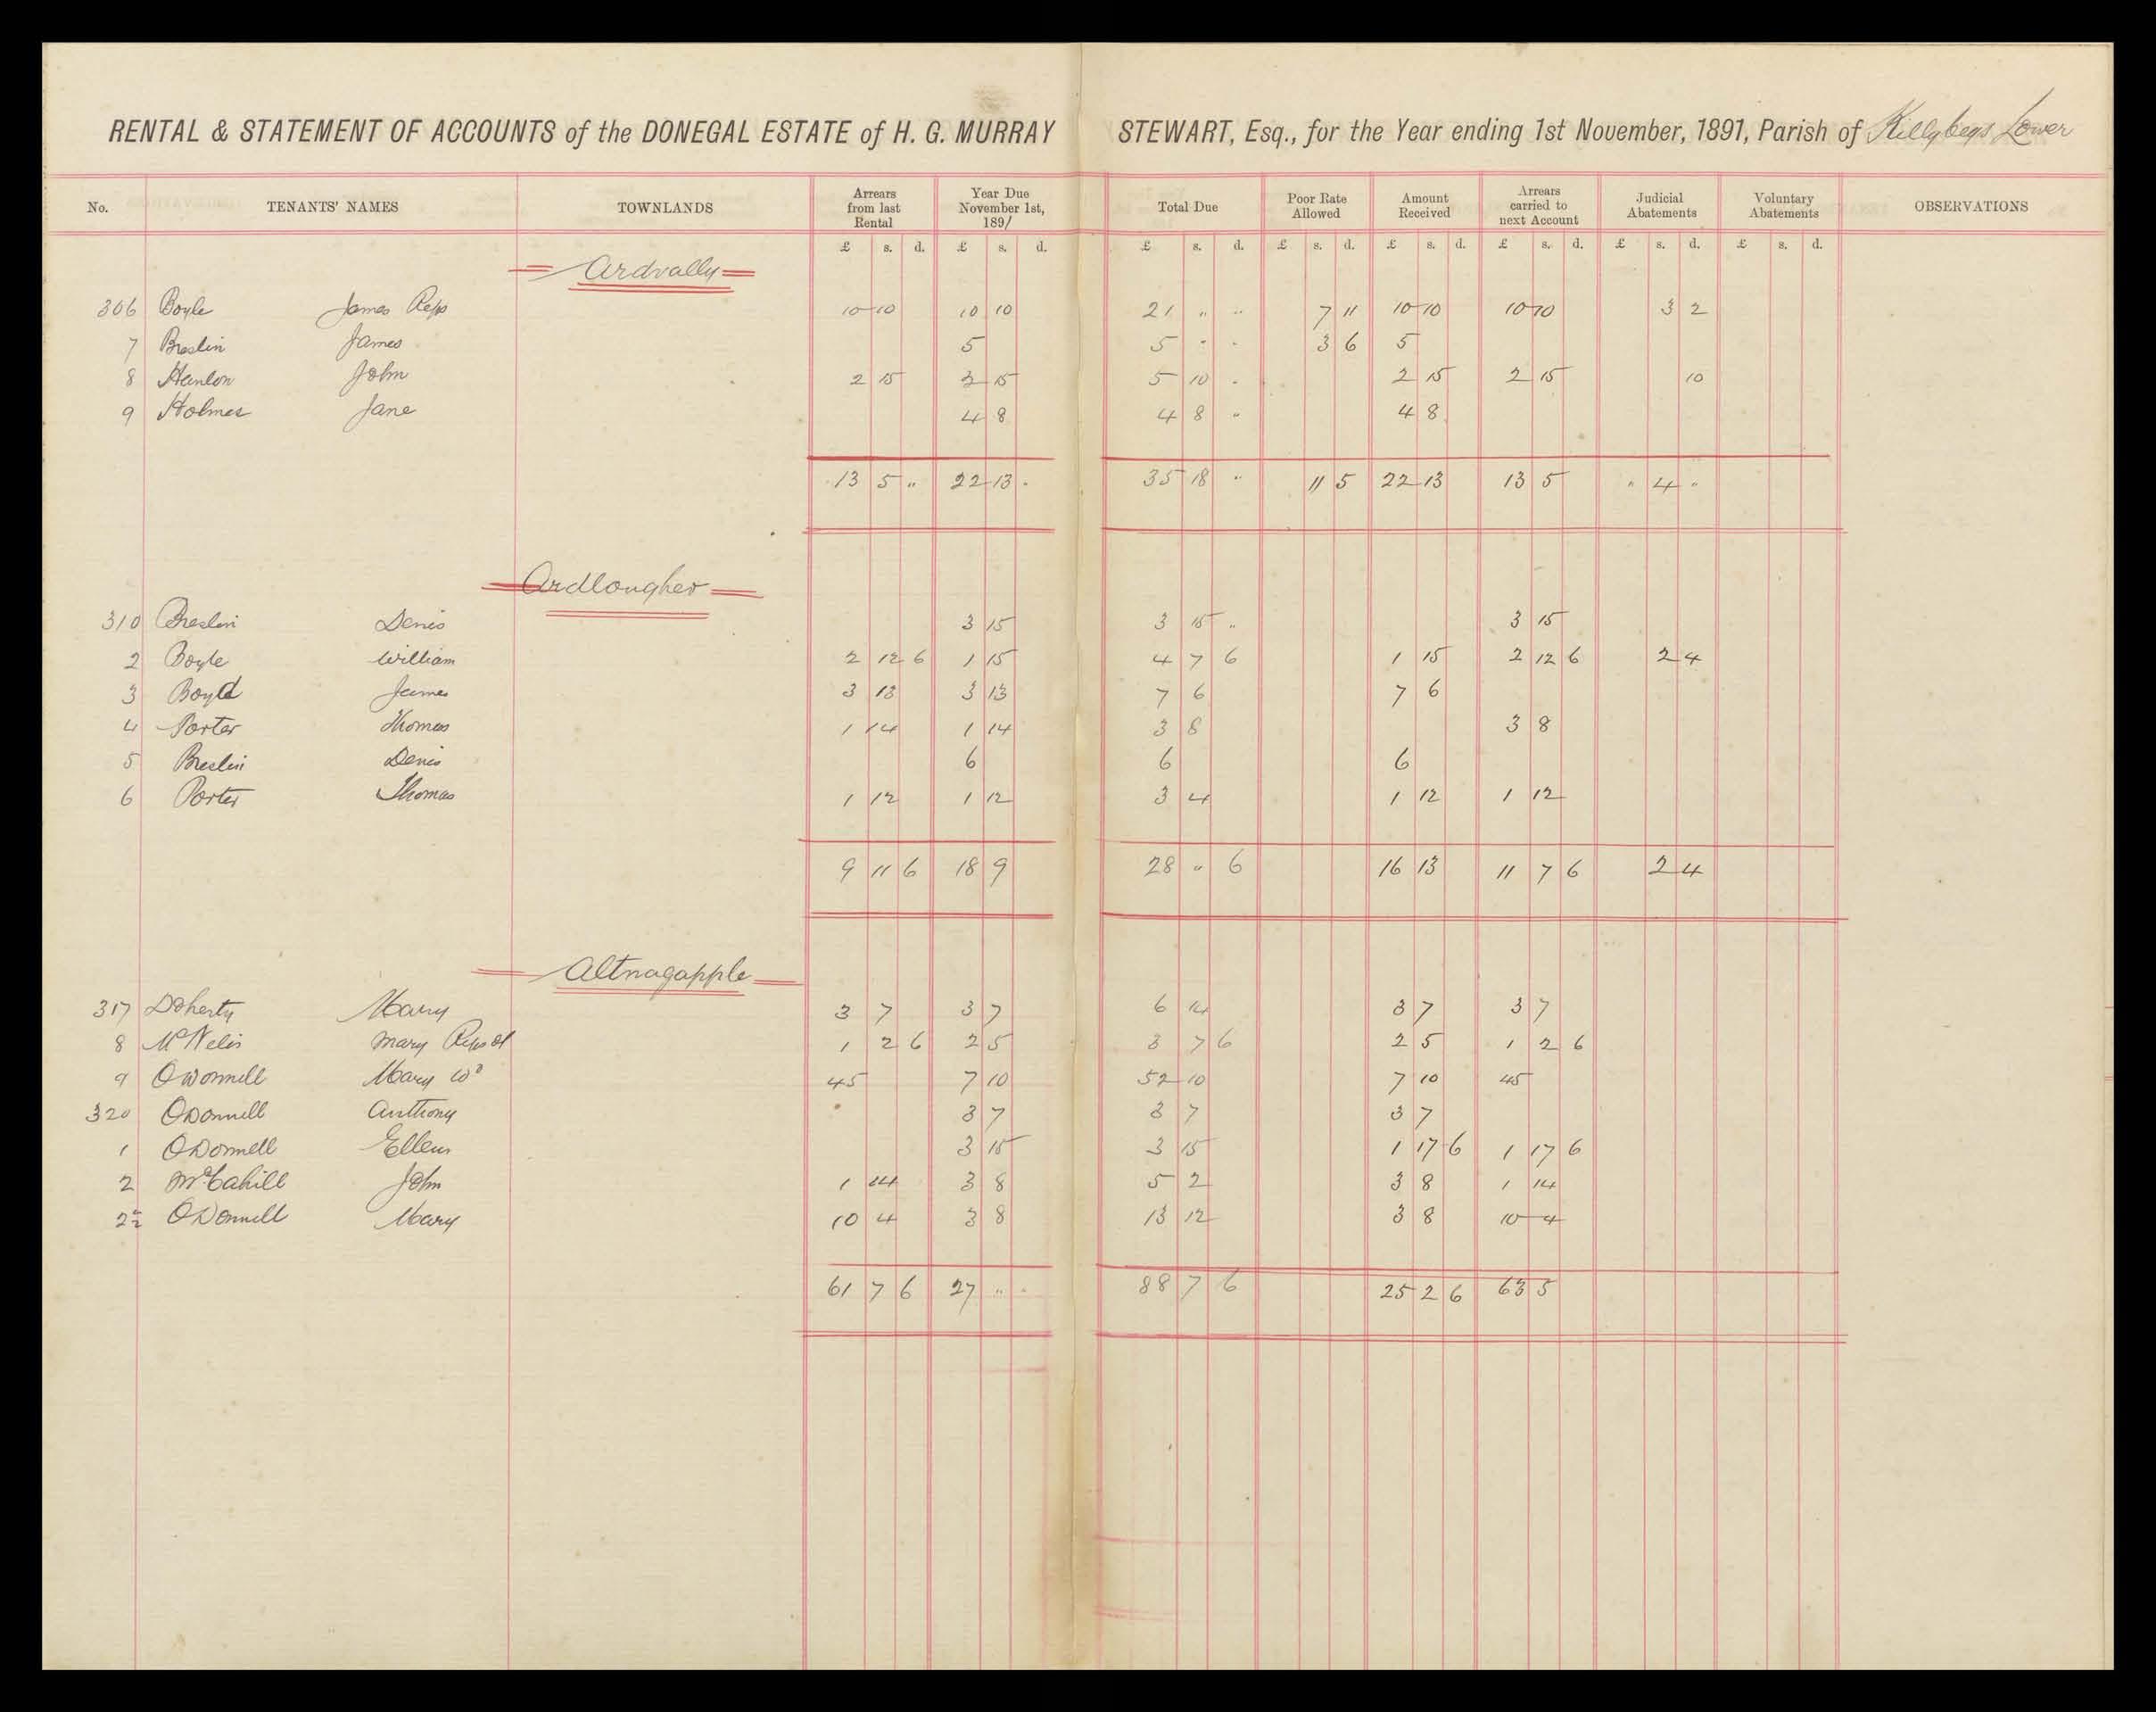 RENTAL & STATEMENT OF ACCOUNTS of the DONEGAL ESTATE of H. G. MURRAY STEWART, Esq., for the Year ending 1st November, 1891, Parish of Killybegs Lower
No. TENANTS' NAMES TOWNLANDS Arrears from last Rental Year Due November 1st, 1891 Total Due Poor Rate Allowed Amount Received Arrears carried to next Account Judicial Abatements Voluntary Abatements OBSERVATIONS
£ s. d. £ s. d. £ s. d. £ s. d. £ s. d. £ s. d. £ s. d. £ s. d.
Ardvally
306 Boyle James Reps 10 10 10 10 21 " " 7 11 10 10 10 10 3 2
7 Breslin James 5 5 " " 3 6 5
8 Hanlon John 2 15 2 15 5 10 " 2 15 2 15 10
9 Holmes Jane 4 8 4 8 " 4 8
13 5 " 22 13 " 35 18 " 11 5 22 13 13 5 " 4 "
Ardlougher
310 Breslin Denis 3 15 3 15 " 3 15
2 Boyle William 2 12 6 1 15 4 7 6 1 15 2 12 6 2 4
3 Boyd James 3 13 3 13 7 6 7 6
4 Porter Thomas 1 14 1 14 3 8 3 8
5 Breslin Denis 6 6 6
6 Porter Thomas 1 12 1 12 3 4 1 12 1 12
9 11 6 18 9 28 " 6 16 13 11 7 6 2 4
Altnagapple
317 Doherty Mary 3 7 3 7 6 14 3 7 3 7
8 McNelis Mary Reps of 1 2 6 2 5 3 7 6 2 5 1 2 6
9 ODonnell Mary Wd 45 7 10 52 10 7 10 45
320 ODonnell Anthony 3 7 3 7 3 7
1 ODonnell Ellen 3 15 3 15 1 17 6 1 17 6
2 McCahill John 1 14 3 8 5 2 3 8 1 14
2½ ODonnell Mary 10 4 3 8 13 12 3 8 10 4
61 7 6 27 " " 88 7 6 25 2 6 63 5